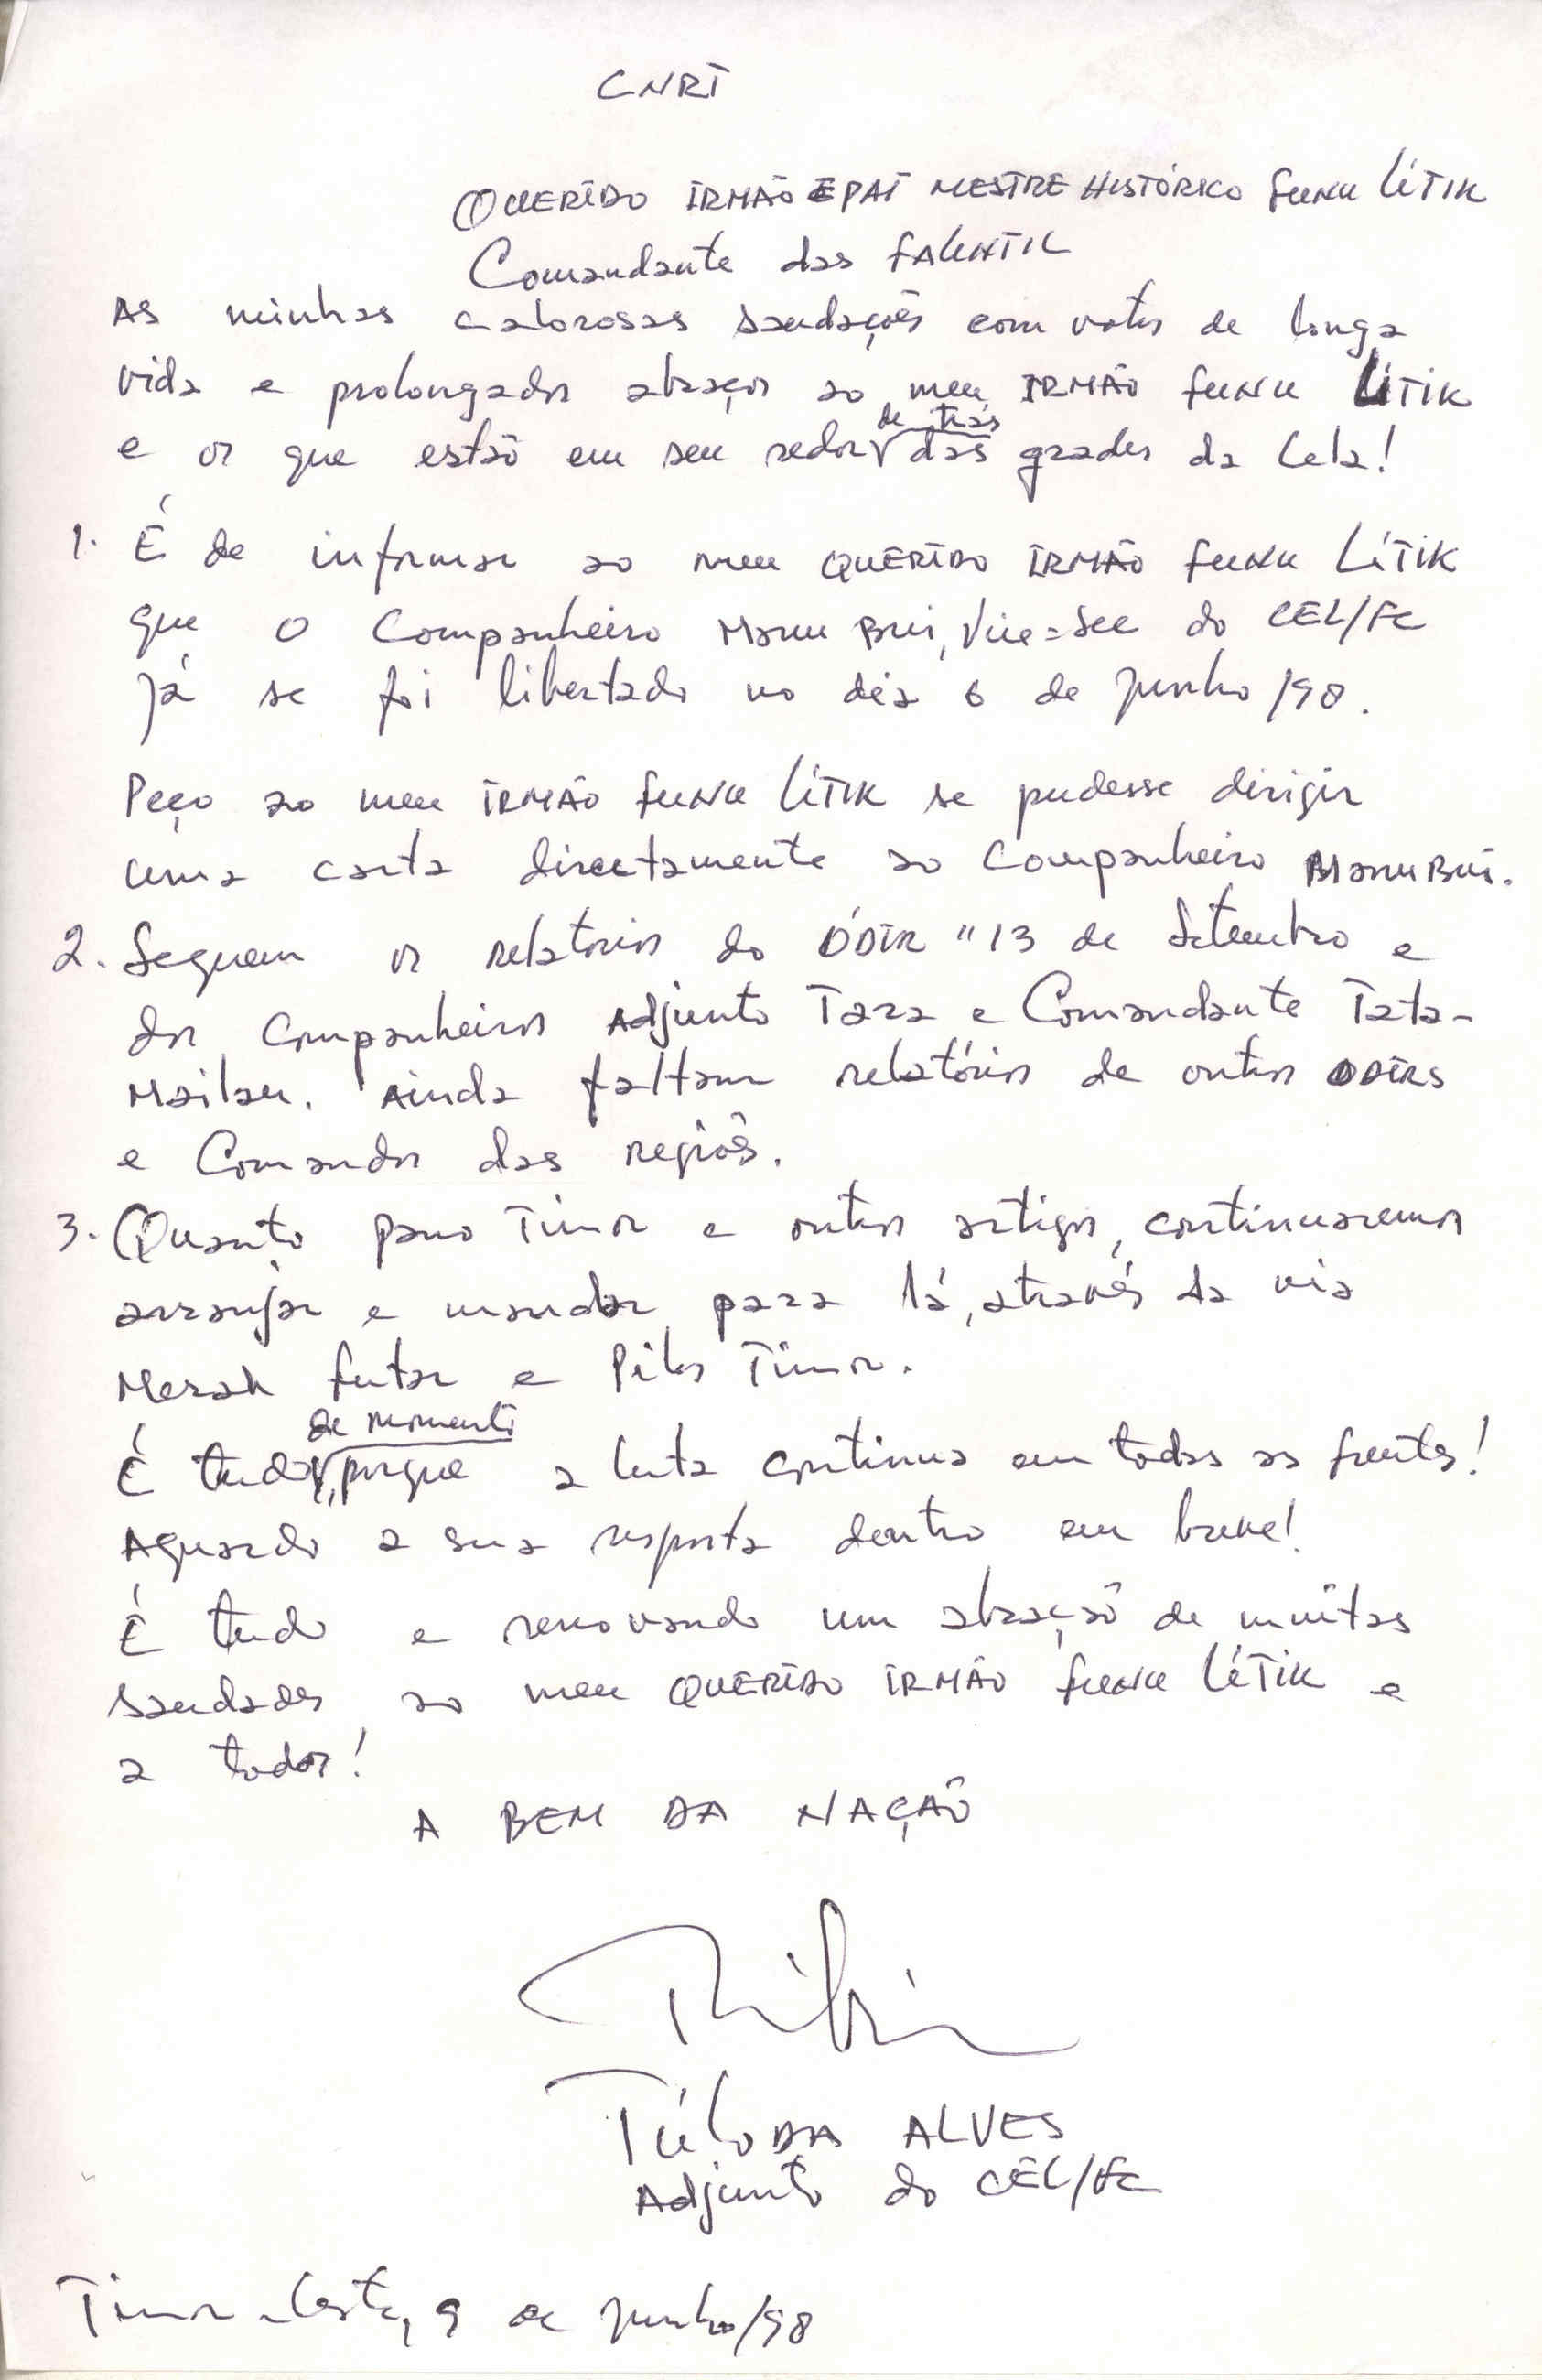 CNRT
QUERIDO IRMÃO E PAI MESTRE HISTÓRICO FUNU LÍTIK
Comandante das FALINTIL
As minhas calorosas saudações com votos de longa
vida e prolongados abraços ao meu IRMÃO FUNU LÍTIK
de trás
e os que estão em seu redor das grades da Cela!
1. É de informar ao meu QUERIDO IRMÃO FUNU LÍTIK
que o Companheiro Manu Bui, Vice=Sec do CEL/FC
já se foi libertado no dia 6 de Junho/98.
Peço ao meu IRMÃO FUNU LÍTIK se pudesse dirigir
uma carta directamente ao Companheiro Manu Bui.
2. Seguem os relatórios do ODIR "13 de Setembro e
dos Companheiros Adjunto Tara e Comandante Tata-
Mailau. Ainda faltam relatórios de outros ODIRS
e Comandos das regiões.
3. Quanto pano Timor e outros artigos, continuaremos
arranjar e mandar para lá, através da via
Merah Futar e Pilos Timor.
de momento
É tudo, porque a luta continua em todas as frentes!
Aguardo a sua resposta dentro em breve!
É tudo e renovando um abração de muitas
saudades ao meu QUERIDO IRMÃO FUNU LÍTIK e
a todos!
A BEM DA NAÇÃO
Túlo DA ALVES
Adjunto do CEL/FC
Timor-Leste, 9 de Junho/98